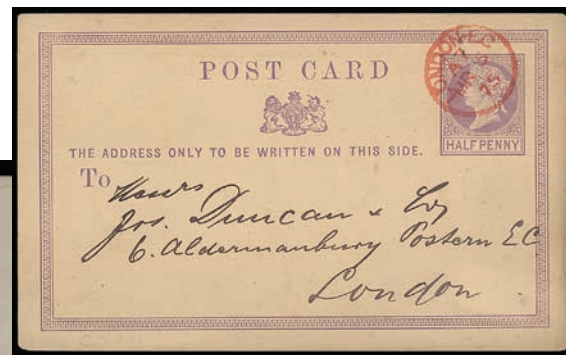 POST CARD
LONDON.E.C
THE ADDRESS ONLY TO BE WRITTEN ON THIS SIDE.
HALFPENNY
To Messrs
Jos. Duncan & Co
6. Aldermanbury Postern E.C
London.